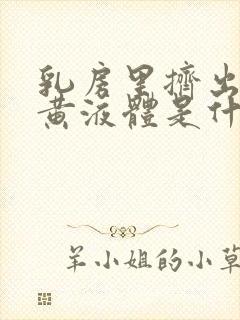 乳房里擠出
黄液體是什
羊小姐的小草